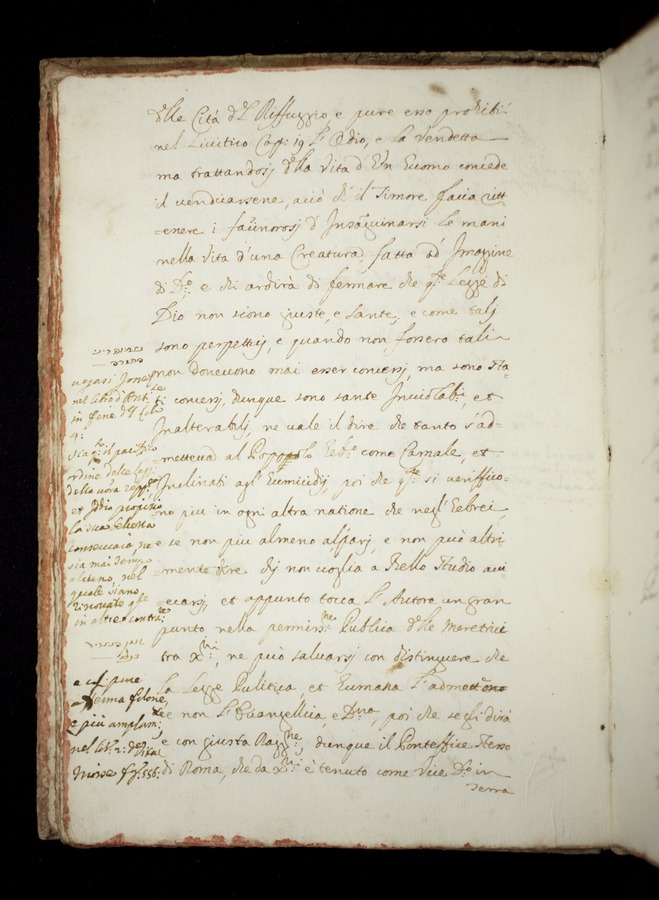 d'lle Cità d'l Riffuggio, e pure esso prohibi:
nel Livitico Cap: 19 l'Odio, e la vendetta
ma trattandosj d'lla Vita d'Un Euomo concede
il vendicarsene, acciò ch'il Timore facia
=enere i facinorosj d'Insaguinarsi le mani
nella Vita d'una Creatura fatta ad Imagine
di D:o, e chi ardirà di fermare che q:te Legge di
Dio non siono giuste, e sante, e come talj
sono perpettuj, e quando non fossero tali
non dovevono mai esser concessj, ma sono sta=
ti concessj, dunque sono sante Inviolab:i, et
Inalterabilj, ne vale il dire che tanto s'ad=
=metteva al Popolo Eeb:o come Carnale, et
Inclinati agl'Eumicidij poi che q:to si veriffico=
no piu in ogni altra natione che negl'Eebrei,
e se non piu almeno al parj, e non può altri
=mente dire chj non voglia a Bello studio acci=
=ecarsj, et appunto tocca l'Autore un gran
punto nella permiss:ne Publica d'lle Meretrici
tra X:ni, ne può salvarsj con distinguere che
la Legge Pulitica, et Eumana l'admettono
e non l'Evangellica e D:na, poi che se gli dirà
e con giusta Rag:ne, dunque il Ponteffice stesso
di Roma, che da X:ni è tenuto come Vice D:o in
Terra
vegasi Josef
nel libro d'Anti
in fine d'l lib:o
4:
il pacifico
ordine delle Legg:
della vostra
et Iddio propitio
la sua bellezza
conservarà, ne
sia mai tempo
alcuno, nel
quale siano
rinovate
in altre contra:
e così pure
afferma filone,
e più amplam:te
nel lib: 2: de Vita
Moise fo: 556: